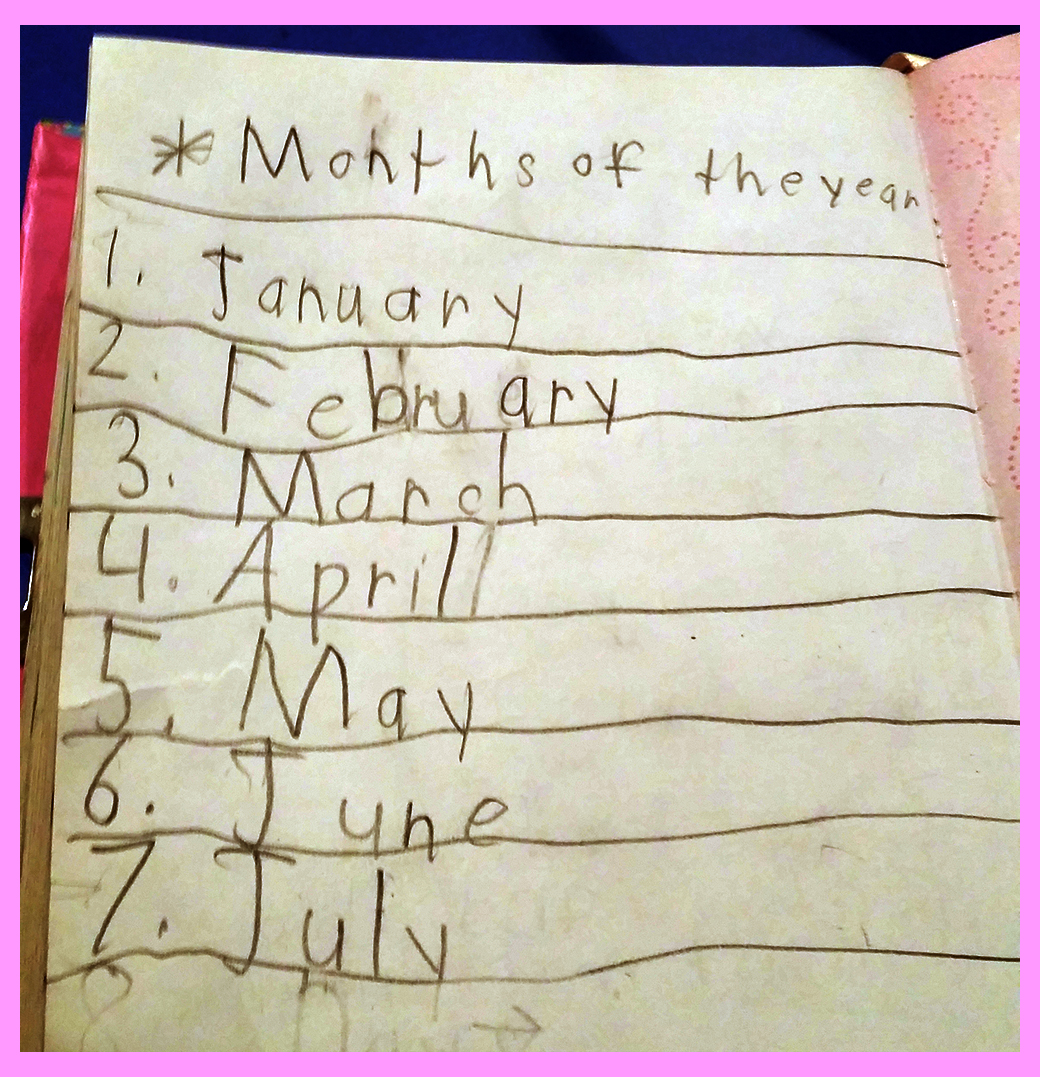 * Months of the year.
1. January
2. February
3. March
4. Aprill
5. May
6. June
7. July
8. →